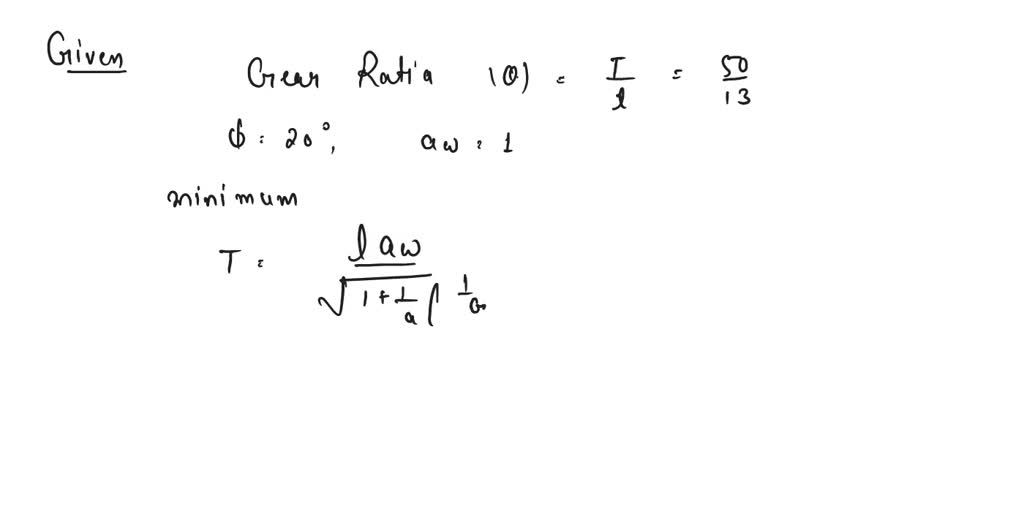 Given
Gear Ratio (G) = T/t = 50/13
φ = 20°, aw = 1
minimum
T = 2 aw / √1 + 1/G ( 1/G